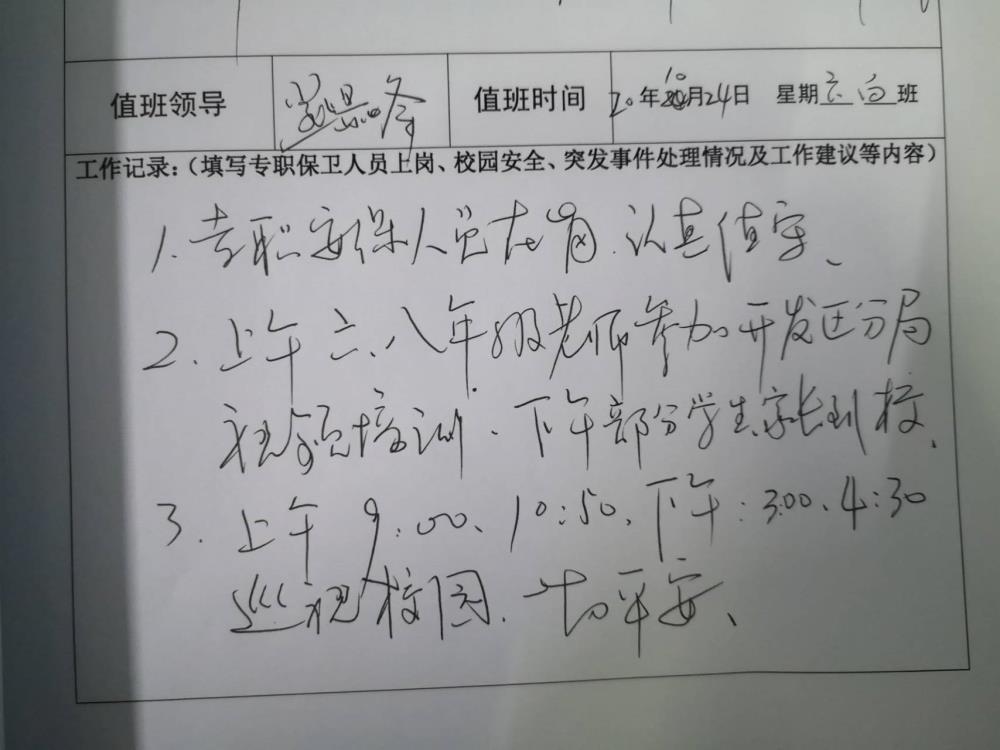 值班领导
值班时间 20年10月24日 星期六白班
工作记录:(填写专职保卫人员上岗、校园安全、突发事件处理情况及工作建议等内容)
1. 专职安保人员在岗、认真值守、
2、上午六、八年级老师参加开发区分局
视频培训、下午部分学生家长到校、
3. 上午9:00、10:50、下午:3:00、4:30
巡视校园、一切平安、